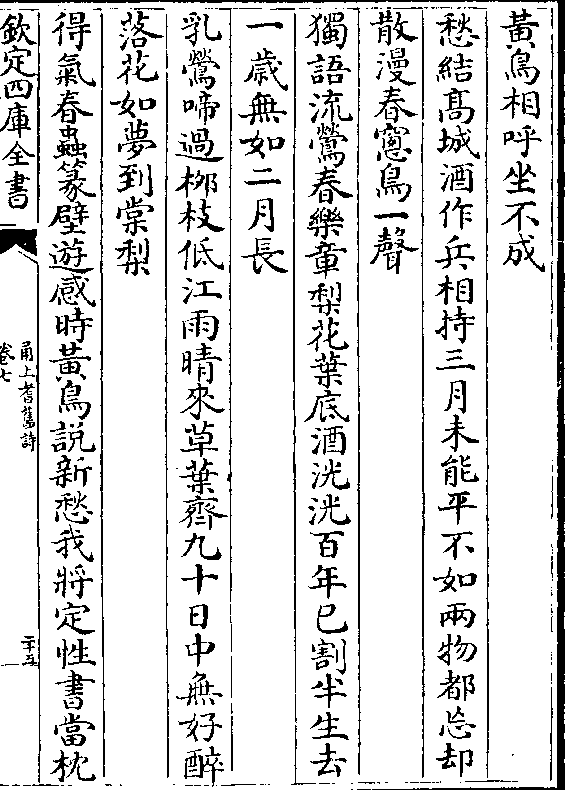 黃鳥相呼坐不成
愁結髙城酒作兵相持三月未能平不如兩物都忘却
散漫春窻鳥一聲
獨語流鶯春樂章梨花葉底酒洸洸百年已割半生去
一歲無如二月長
乳鶯啼過栁枝低江雨晴來草葉齊九十日中無好醉
落花如夢到棠梨
得氣春蟲篆壁遊感時黃鳥説新愁我將定性書當枕
欽定四庫全書
甬上耆舊詩
卷七
二十五